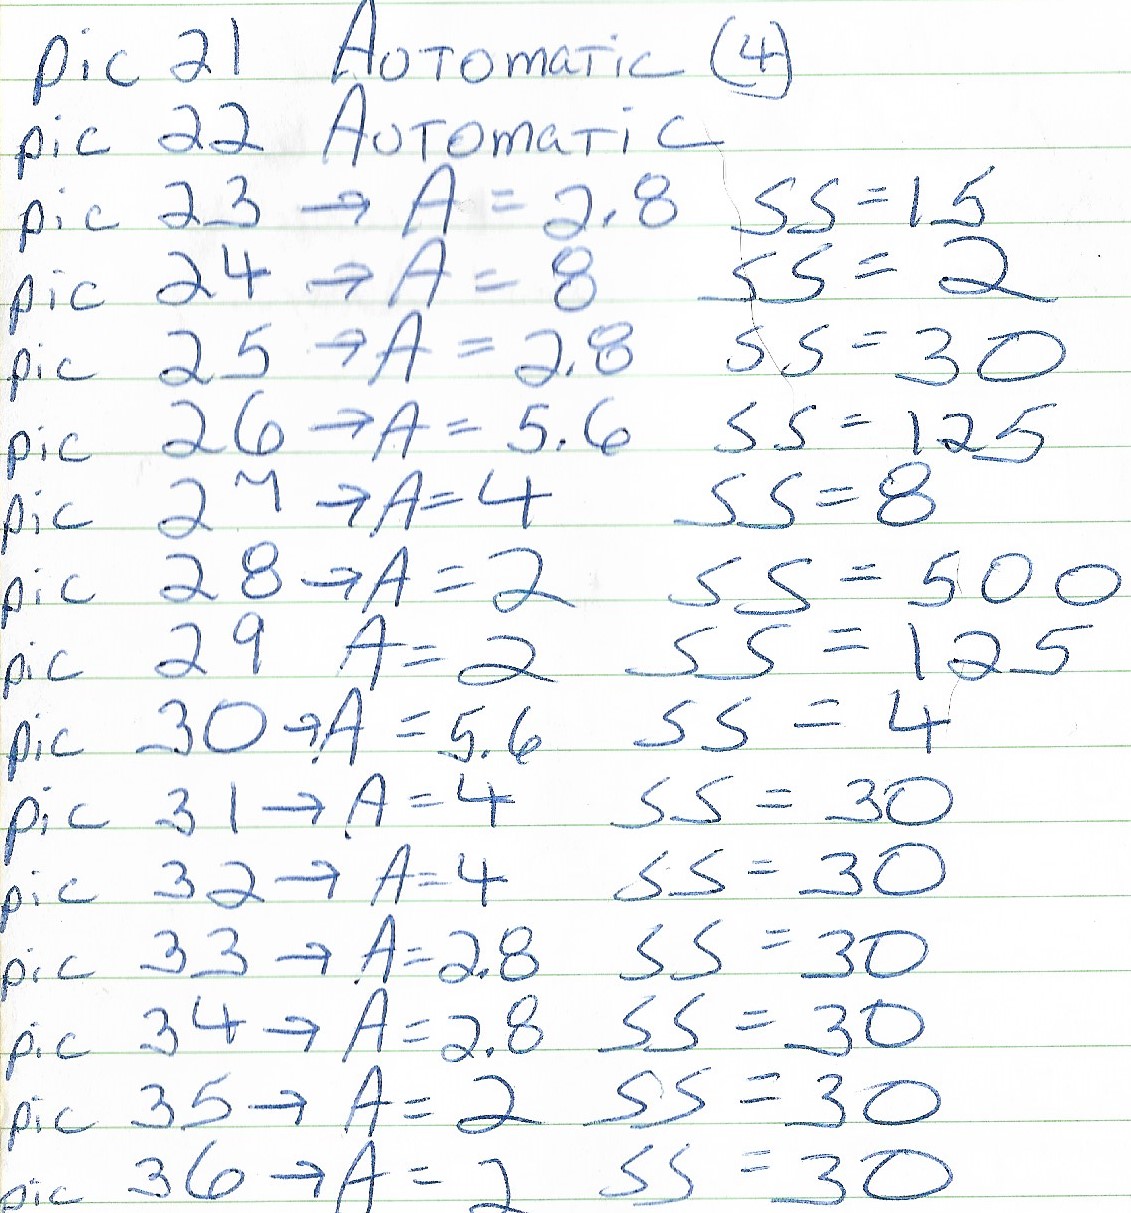 pic 21 Automatic (4)
pic 22 Automatic
pic 23 → A = 2.8 SS = 15
pic 24 → A = 8 SS = 2
pic 25 → A = 2.8 SS = 30
pic 26 → A = 5.6 SS = 125
pic 27 → A = 4 SS = 8
pic 28 → A = 2 SS = 500
pic 29 A = 2 SS = 125
pic 30 → A = 5.6 SS = 4
pic 31 → A = 4 SS = 30
pic 32 → A = 4 SS = 30
pic 33 → A = 2.8 SS = 30
pic 34 → A = 2.8 SS = 30
pic 35 → A = 2 SS = 30
pic 36 → A = 2 SS = 30